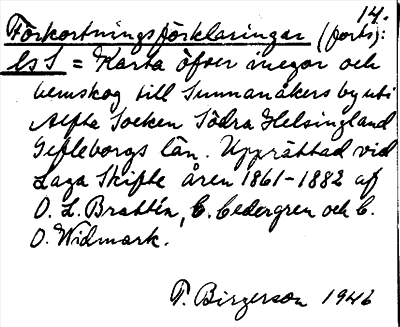 14.
Förkortningsförklaringar (forts):
LsS = Karta öfver inegor och
hemskog till Sunnanåkers by uti
Alfta Socken Södra Helsingland
Gefleborgs län. Upprättad vid
Laga Skifte åren 1861-1882 af
O. L. Brattén, C. Cedergren och C.
O. Widmark.
T. Birgerson 1946